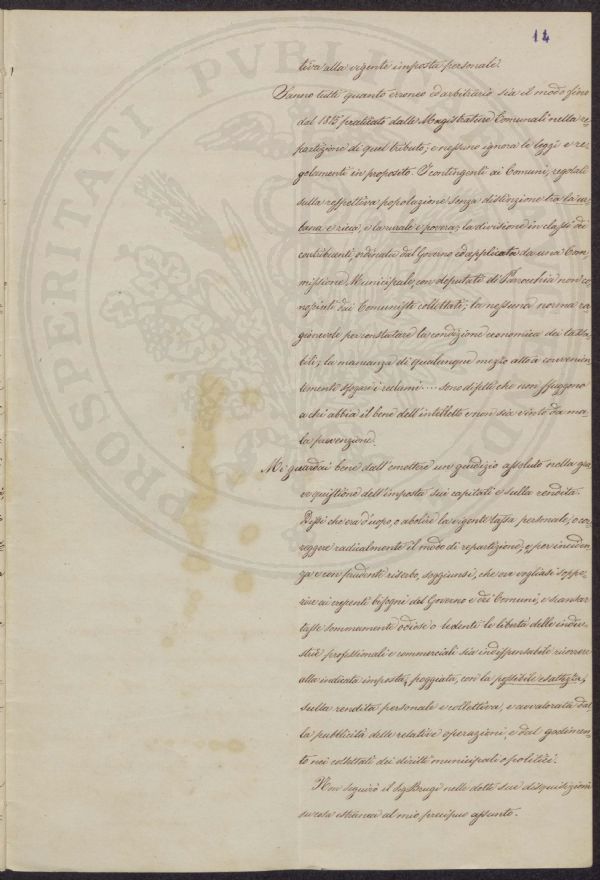 14
tiva alla vigente imposta personale.
Sanno tutti quanto erroneo ed arbitrario sia il modo fino
dal 1815 praticato dalle Magistrature Comunali nella re-
partizione di quel tributo; e nessuno ignora le leggi e re-
golamenti in proposito. I contingenti ai Comuni, regolati
sulla respettiva popolazione senza distinzione tra la ur-
bana e ricca, e la rurale e povera; la divisione in classi dei
contribuenti, ordinata dal Governo ed applicata da una Com-
missione Municipale, con deputati di Parrocchia non co-
nosciuti dai Comunisti collettati; la nessuna norma ra-
gionevole per constatare la condizione economica dei tassa-
bili; la mancanza di qualunque mezzo atto a convenien-
temente sfogare i reclami .... sono difetti che non sfuggono
a chi abbia il bene dell'intelletto e non sia vinto da ma-
la prevenzione.
Mi guardai bene dall'emettere un giudizio assoluto nella gra-
ve quistione dell'imposta sui capitali e sulla rendita.
Dissi che era d'uopo, o abolire la vigente tassa personale, o cor-
reggere radicalmente il modo di repartizione; e, per inciden-
za e con prudente riserbo, soggiunsi, che ove vogliasi soppe-
rire ai crescenti bisogni del Governo e dei Comuni, e scansar
tasse sommamente odiose o ledenti le libertà delle indu-
strie professionali e commerciali sia indispensabile ricorrere
alla indicata imposta, poggiata, con la possibile esattezza,
sulla rendita personale e collettiva, e avvalorata dal-
la pubblicità delle relative operazioni, e dal godimen-
to nei collettati dei diritti municipali o politici.
Non seguirò il Sig. Brugi nelle dotte sue disquisizioni
su cosa estranea al mio precipuo assunto.
PROSPERITATI PUBLI